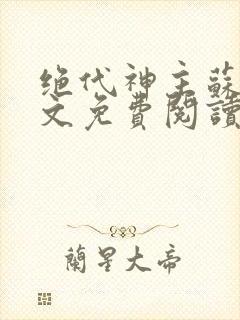 绝代神主蘇
文免費閱讀
蘭星大帝